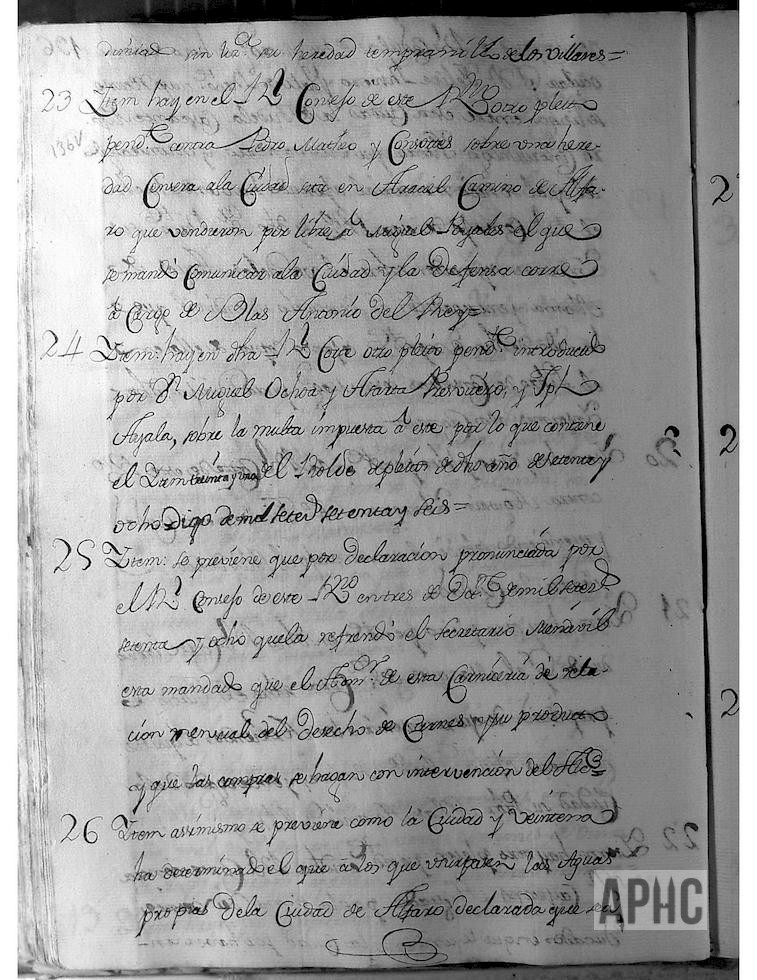 heredad de los Villares=
23 Item hay en el Rl. Consejo de este Rno. otro pleito
pend.te contra Pedro Matheo y Consortes sobre una here-
dad Censera ala Ciudad sita en Araciel Camino de Alfa-
ro que vendieron por libre a Miguel Royales el que
se mandó Comunicar ala Ciudad y la Defensa corre
a Cargo de Blas Antonio del Rey=
24 Item: hay en dha Rl. Corte otro pleito pend.te introducido
por Dn. Miguel Ochoa y Presvitero, y Jph.
Ayala, sobre la multa impuesta a este por lo que contiene
el Item treinta y uno del Rolde de pleitos de dho año de setenta y
ocho Digo de mil seteds. setenta y seis=
25 Item: se previene que por declaracion pronunciada por
el Rl. Consejo de este Rno. en tres de de mil seteds.
setenta y ocho que la refrendó el Secretario Mendivil
esta mandado que el Admor. de esta Carniceria dé rela-
ción mensual del Derecho de Carnes y su producto
y que las compras se hagan con intervención del
26 Item assimismo se previene como la Ciudad y Veintena
ha determinado el que a los que usurpasen las Aguas
propias dela Ciudad de Alfaro declarada que sea
APHC